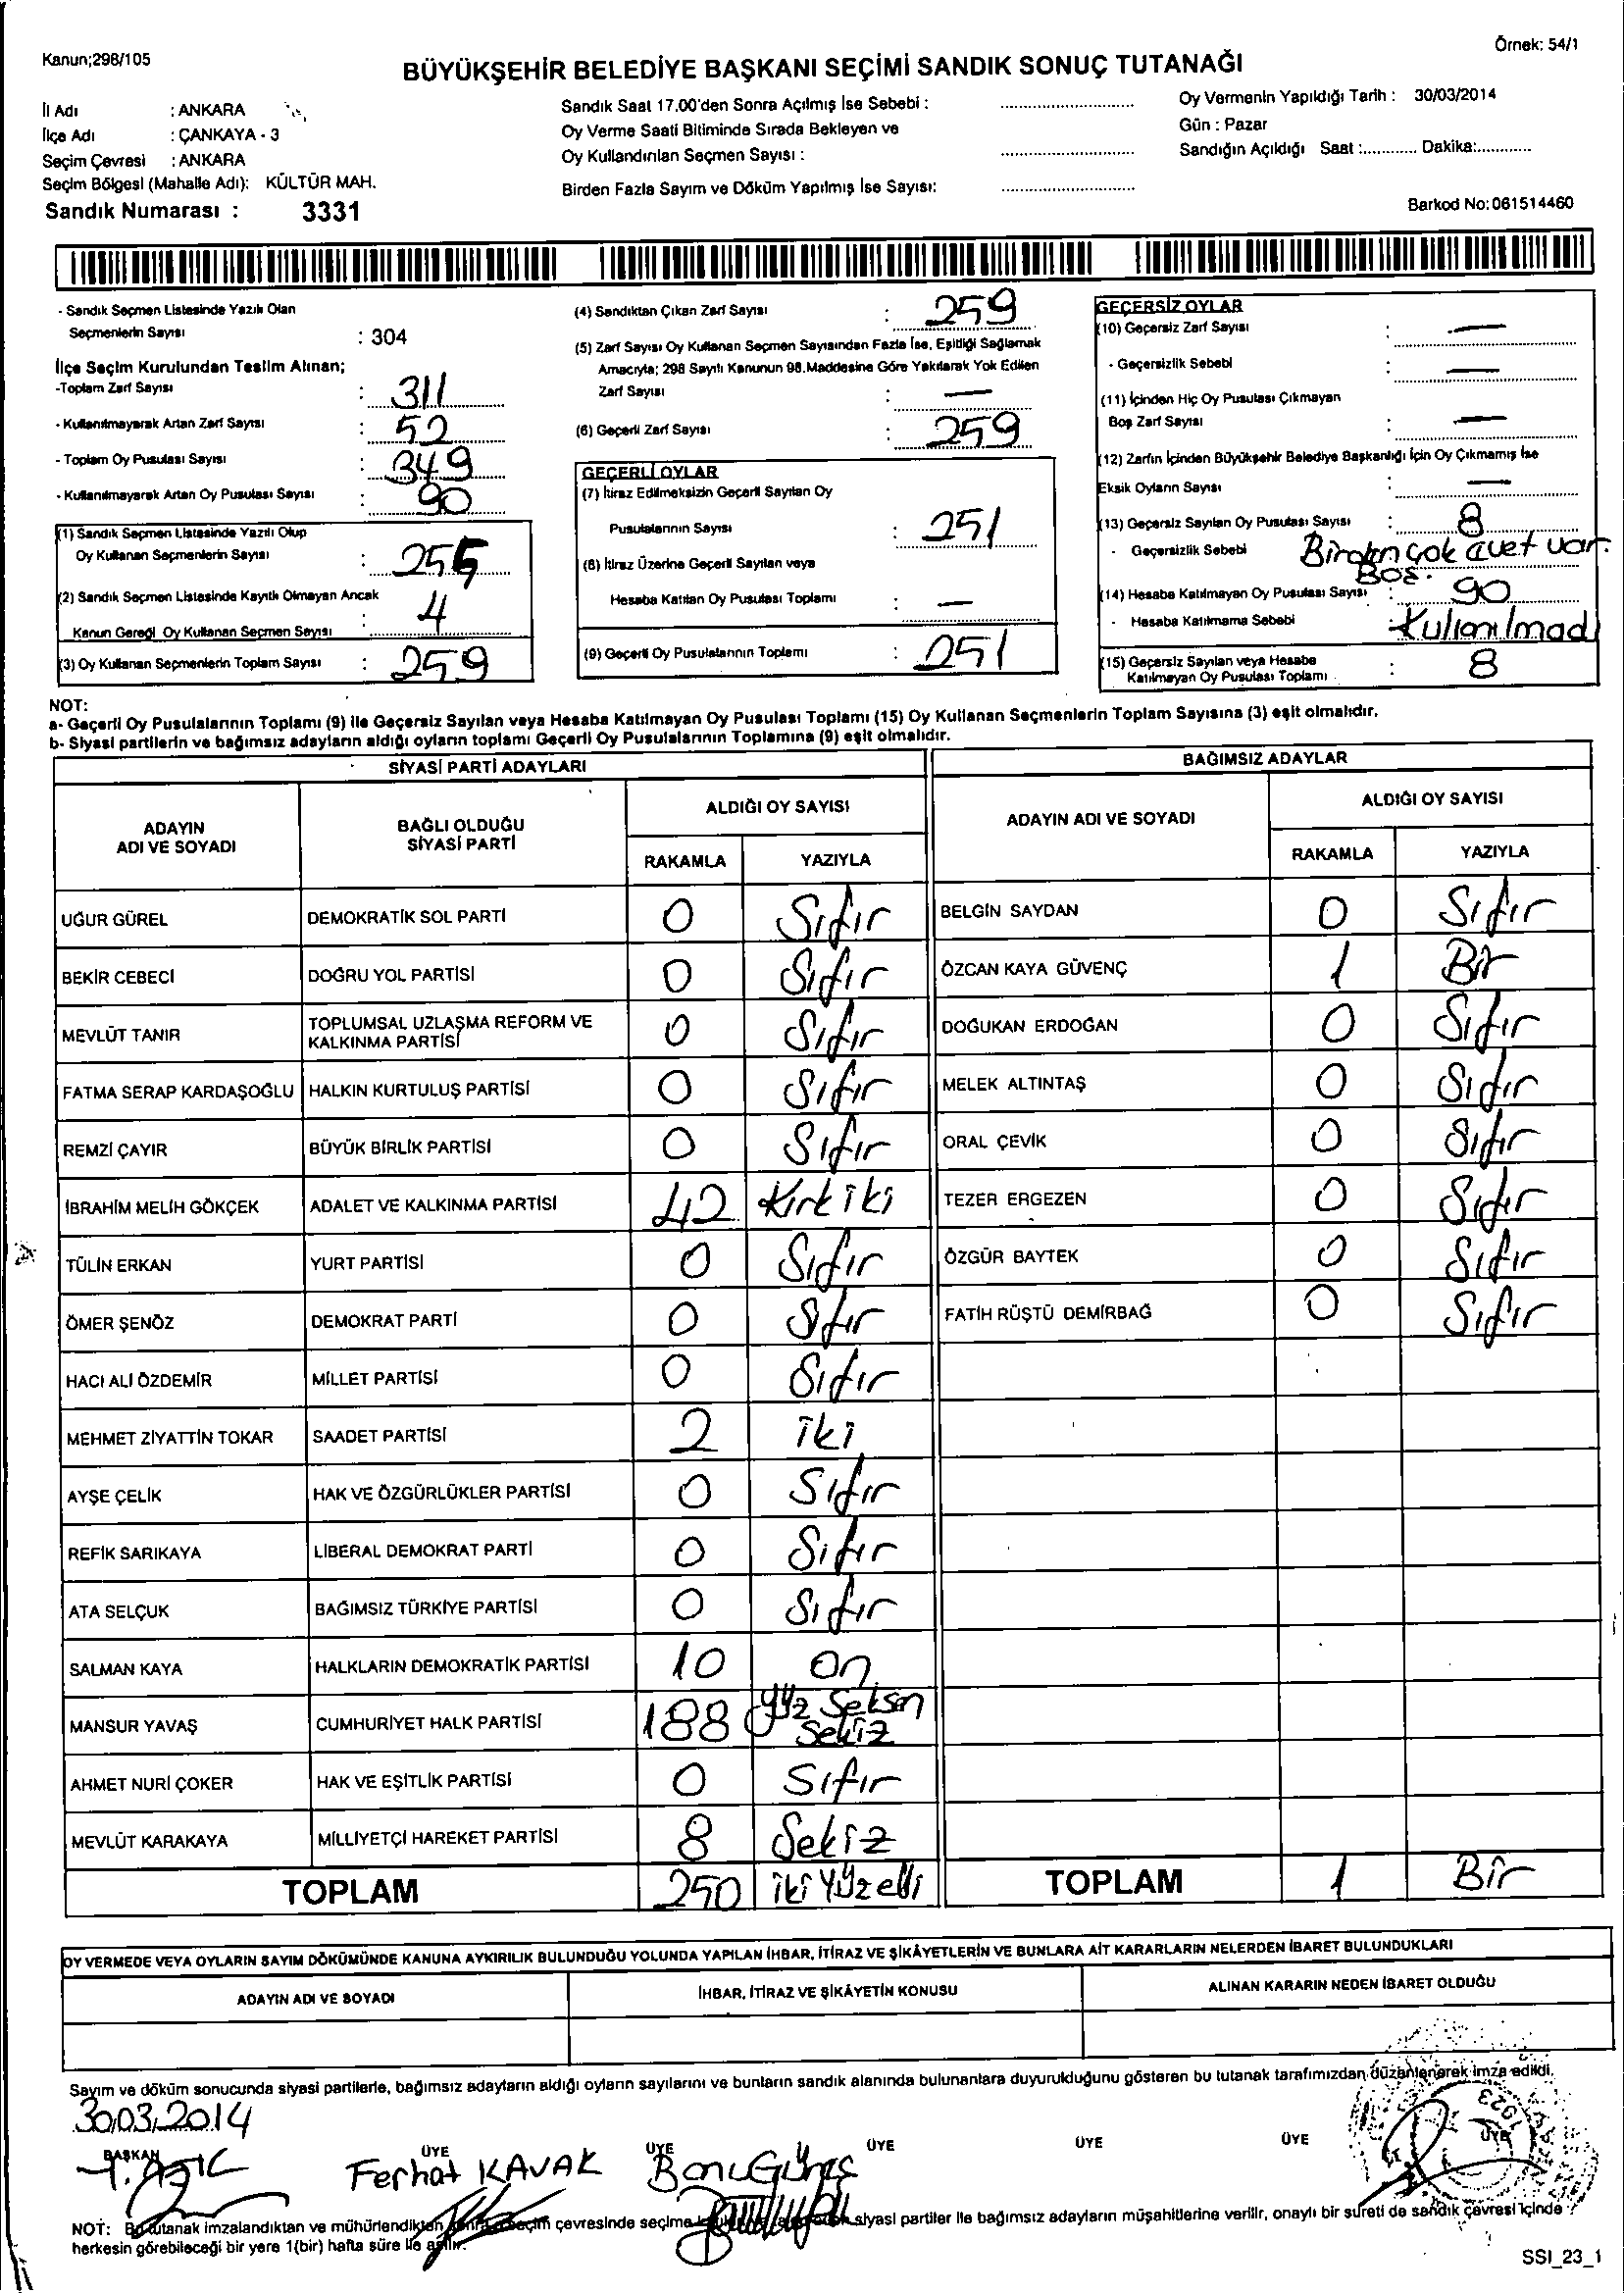 Kanun;298/105
Örnek: 54/1
BÜYÜKŞEHİR BELEDİYE BAŞKANI SEÇİMİ SANDIK SONUÇ TUTANAĞI
İl Adı : ANKARA
İlçe Adı : ÇANKAYA - 3
Seçim Çevresi : ANKARA
Seçim Bölgesi (Mahalle Adı): KÜLTÜR MAH.
Sandık Numarası : 3331
Sandık Saat 17.00'den Sonra Açılmış İse Sebebi :
Oy Verme Saati Bitiminde Sırada Bekleyen ve
Oy Kullandırılan Seçmen Sayısı :
Birden Fazla Sayım ve Döküm Yapılmış İse Sayısı:
Oy Vermenin Yapıldığı Tarih : 30/03/2014
Gün : Pazar
Sandığın Açıldığı Saat :............ Dakika:............
Barkod No: 061514460
- Sandık Seçmen Listesinde Yazılı Olan
Seçmenlerin Sayısı : 304
İlçe Seçim Kurulundan Teslim Alınan;
-Toplam Zarf Sayısı : 311
- Kullanılmayarak Artan Zarf Sayısı : 52
- Toplam Oy Pusulası Sayısı : 349
- Kullanılmayarak Artan Oy Pusulası Sayısı : 90
(1) Sandık Seçmen Listesinde Yazılı Olup
Oy Kullanan Seçmenlerin Sayısı : 255
(2) Sandık Seçmen Listesinde Kayıtlı Olmayan Ancak
Kanun Gereği Oy Kullanan Seçmen Sayısı : 4
(3) Oy Kullanan Seçmenlerin Toplam Sayısı : 259
(4) Sandıktan Çıkan Zarf Sayısı : 259
(5) Zarf Sayısı Oy Kullanan Seçmen Sayısından Fazla İse, Eşitliği Sağlamak
Amacıyla; 298 Sayılı Kanunun 98.Maddesine Göre Yakılarak Yok Edilen
Zarf Sayısı : —
(6) Geçerli Zarf Sayısı : 259
GEÇERLİ OYLAR
(7) İtiraz Edilmeksizin Geçerli Sayılan Oy
Pusulalarının Sayısı : 251
(8) İtiraz Üzerine Geçerli Sayılan veya
Hesaba Katılan Oy Pusulası Toplamı : —
(9) Geçerli Oy Pusulalarının Toplamı : 251
GEÇERSİZ OYLAR
(10) Geçersiz Zarf Sayısı : —
- Geçersizlik Sebebi : —
(11) İçinden Hiç Oy Pusulası Çıkmayan
Boş Zarf Sayısı : —
(12) Zarfın İçinden Büyükşehir Belediye Başkanlığı İçin Oy Çıkmamış İse
Eksik Oyların Sayısı : —
(13) Geçersiz Sayılan Oy Pusulası Sayısı : 8
- Geçersizlik Sebebi Birden çok evet var.
Boş.
(14) Hesaba Katılmayan Oy Pusulası Sayısı : 90
- Hesaba Katılmama Sebebi : Kullanılmadı
(15) Geçersiz Sayılan veya Hesaba
Katılmayan Oy Pusulası Toplamı : 8
NOT:
a- Geçerli Oy Pusulalarının Toplamı (9) ile Geçersiz Sayılan veya Hesaba Katılmayan Oy Pusulası Toplamı (15) Oy Kullanan Seçmenlerin Toplam Sayısına (3) eşit olmalıdır.
b- Siyasi partilerin ve bağımsız adayların aldığı oyların toplamı Geçerli Oy Pusulalarının Toplamına (9) eşit olmalıdır.
SİYASİ PARTİ ADAYLARI
ADAYIN ADI VE SOYADI BAĞLI OLDUĞU SİYASİ PARTİ ALDIĞI OY SAYISI
RAKAMLA YAZIYLA
UĞUR GÜREL DEMOKRATİK SOL PARTİ 0 Sıfır
BEKİR CEBECİ DOĞRU YOL PARTİSİ 0 Sıfır
MEVLÜT TANIR TOPLUMSAL UZLAŞMA REFORM VE KALKINMA PARTİSİ 0 Sıfır
FATMA SERAP KARDAŞOĞLU HALKIN KURTULUŞ PARTİSİ 0 Sıfır
REMZİ ÇAYIR BÜYÜK BİRLİK PARTİSİ 0 Sıfır
İBRAHİM MELİH GÖKÇEK ADALET VE KALKINMA PARTİSİ 42 Kırk iki
TÜLİN ERKAN YURT PARTİSİ 0 Sıfır
ÖMER ŞENÖZ DEMOKRAT PARTİ 0 Sıfır
HACI ALİ ÖZDEMİR MİLLET PARTİSİ 0 Sıfır
MEHMET ZİYATTİN TOKAR SAADET PARTİSİ 2 iki
AYŞE ÇELİK HAK VE ÖZGÜRLÜKLER PARTİSİ 0 Sıfır
REFİK SARIKAYA LİBERAL DEMOKRAT PARTİ 0 Sıfır
ATA SELÇUK BAĞIMSIZ TÜRKİYE PARTİSİ 0 Sıfır
SALMAN KAYA HALKLARIN DEMOKRATİK PARTİSİ 10 On
MANSUR YAVAŞ CUMHURİYET HALK PARTİSİ 188 Yüz Seksen Sekiz
AHMET NURİ ÇOKER HAK VE EŞİTLİK PARTİSİ 0 Sıfır
MEVLÜT KARAKAYA MİLLİYETÇİ HAREKET PARTİSİ 8 Sekiz
TOPLAM 250 iki Yüz elli
BAĞIMSIZ ADAYLAR
ADAYIN ADI VE SOYADI ALDIĞI OY SAYISI
RAKAMLA YAZIYLA
BELGİN SAYDAN 0 Sıfır
ÖZCAN KAYA GÜVENÇ 1 Bir
DOĞUKAN ERDOĞAN 0 Sıfır
MELEK ALTINTAŞ 0 Sıfır
ORAL ÇEVİK 0 Sıfır
TEZER ERGEZEN 0 Sıfır
ÖZGÜR BAYTEK 0 Sıfır
FATİH RÜŞTÜ DEMİRBAĞ 0 Sıfır
TOPLAM 1 Bir
OY VERMEDE VEYA OYLARIN SAYIM DÖKÜMÜNDE KANUNA AYKIRILIK BULUNDUĞU YOLUNDA YAPILAN İHBAR, İTİRAZ VE ŞİKÂYETLERİN VE BUNLARA AİT KARARLARIN NELERDEN İBARET BULUNDUKLARI
ADAYIN ADI VE SOYADI İHBAR, İTİRAZ VE ŞİKÂYETİN KONUSU ALINAN KARARIN NEDEN İBARET OLDUĞU
Sayım ve döküm sonucunda siyasi partilerle, bağımsız adayların aldığı oyların sayılarını ve bunların sandık alanında bulunanlara duyurukduğunu gösteren bu tutanak tarafımızdan düzenlenerek imza edildi.
30.03.2014
BAŞKAN ÜYE ÜYE ÜYE ÜYE ÜYE ÜYE
Ferhat KAVAK Banu Güneş
1923
NOT: Bu tutanak imzalandıktan ve mühürlendikten seçim çevresinde seçime siyasi partiler ile bağımsız adayların müşahitlerine verilir, onaylı bir sureti de sandık çevresi içinde
herkesin görebileceği bir yere 1(bir) hafta süre ile asılır.
SSI_23_1